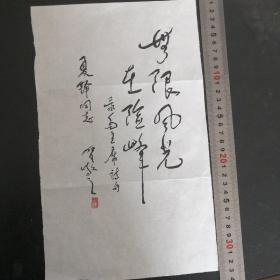 無限风光
在险峰
录毛主席诗句
同志
贺敬之
10
20
30